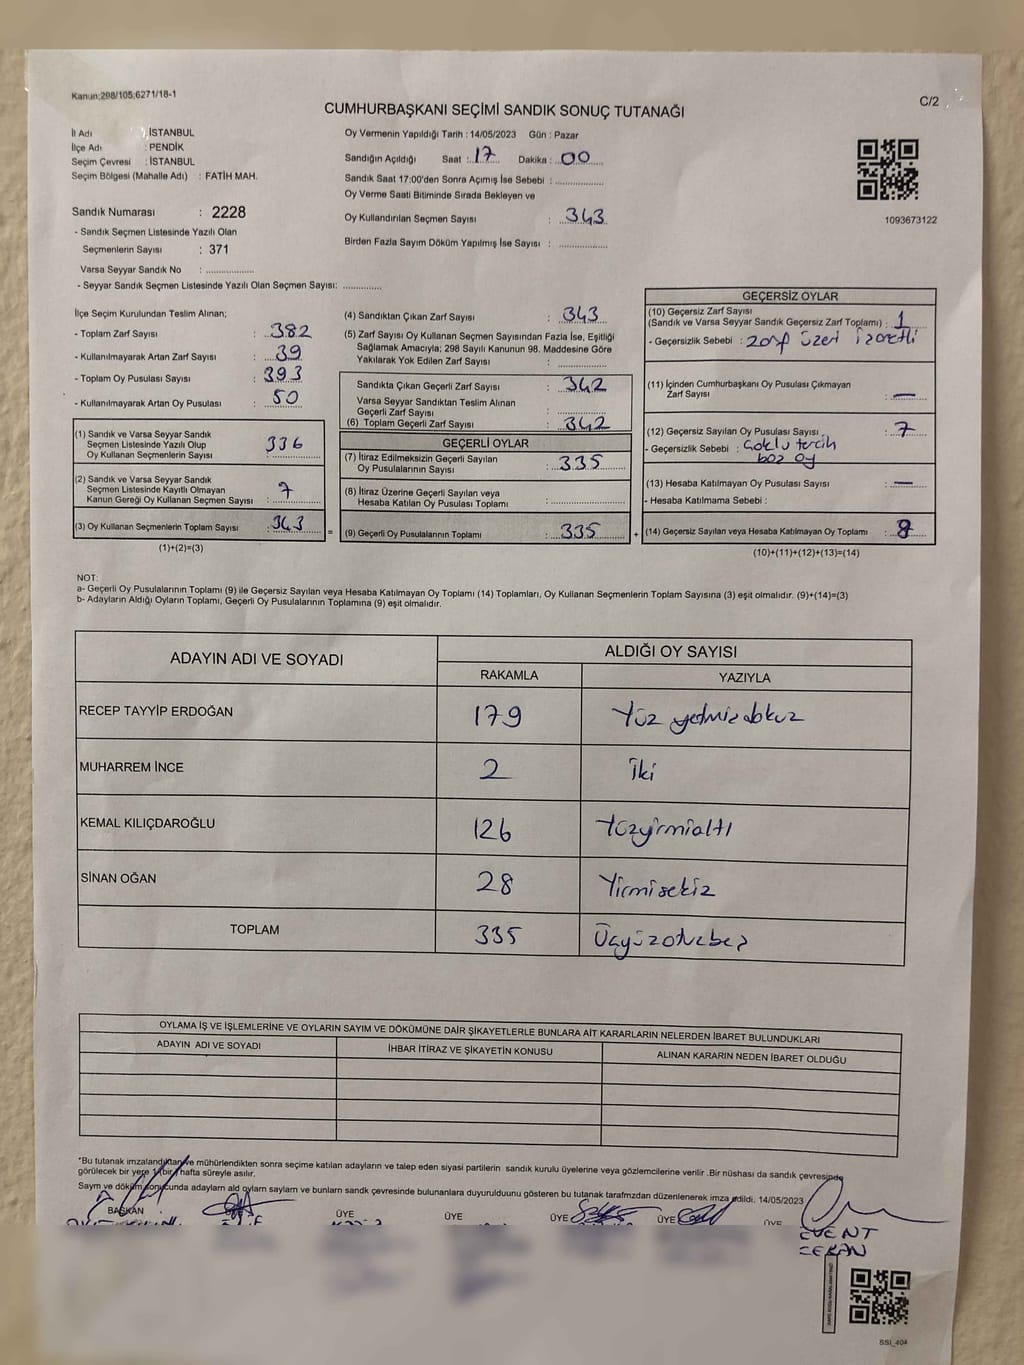 Kanun:298/105;6271/18-1
C/2
CUMHURBAŞKANI SEÇİMİ SANDIK SONUÇ TUTANAĞI
İl Adı : İSTANBUL
İlçe Adı : PENDİK
Seçim Çevresi : İSTANBUL
Seçim Bölgesi (Mahalle Adı) : FATİH MAH.
Sandık Numarası : 2228
- Sandık Seçmen Listesinde Yazılı Olan
Seçmenlerin Sayısı : 371
Varsa Seyyar Sandık No : ...............
- Seyyar Sandık Seçmen Listesinde Yazılı Olan Seçmen Sayısı: ............
Oy Vermenin Yapıldığı Tarih : 14/05/2023 Gün : Pazar
Sandığın Açıldığı Saat : 17 Dakika : 00
Sandık Saat 17:00'den Sonra Açımış İse Sebebi : ...............
Oy Verme Saati Bitiminde Sırada Bekleyen ve
Oy Kullandırılan Seçmen Sayısı : 343
Birden Fazla Sayım Döküm Yapılmış İse Sayısı : ...............
1093673122
İlçe Seçim Kurulundan Teslim Alınan;
- Toplam Zarf Sayısı : 382
- Kullanılmayarak Artan Zarf Sayısı : 39
- Toplam Oy Pusulası Sayısı : 393
- Kullanılmayarak Artan Oy Pusulası : 50
(1) Sandık ve Varsa Seyyar Sandık
Seçmen Listesinde Yazılı Olup
Oy Kullanan Seçmenlerin Sayısı : 336
(2) Sandık ve Varsa Seyyar Sandık
Seçmen Listesinde Kayıtlı Olmayan
Kanun Gereği Oy Kullanan Seçmen Sayısı : 7
(3) Oy Kullanan Seçmenlerin Toplam Sayısı : 343 =
(1)+(2)=(3)
(4) Sandıktan Çıkan Zarf Sayısı : 343
(5) Zarf Sayısı Oy Kullanan Seçmen Sayısından Fazla İse, Eşitliği
Sağlamak Amacıyla; 298 Sayılı Kanunun 98. Maddesine Göre
Yakılarak Yok Edilen Zarf Sayısı : ...............
Sandıkta Çıkan Geçerli Zarf Sayısı : 342
Varsa Seyyar Sandıktan Teslim Alınan
Geçerli Zarf Sayısı : ...............
(6) Toplam Geçerli Zarf Sayısı : 342
GEÇERLİ OYLAR
(7) İtiraz Edilmeksizin Geçerli Sayılan
Oy Pusulalarının Sayısı : 335
(8) İtiraz Üzerine Geçerli Sayılan veya
Hesaba Katılan Oy Pusulaları Toplamı : ...............
(9) Geçerli Oy Pusulalarının Toplamı : 335 +
GEÇERSİZ OYLAR
(10) Geçersiz Zarf Sayısı
(Sandık ve Varsa Seyyar Sandık Geçersiz Zarf Toplamı) : 1
- Geçersizlik Sebebi : zarf üzeri işaretli
(11) İçinden Cumhurbaşkanı Oy Pusulası Çıkmayan
Zarf Sayısı : —
(12) Geçersiz Sayılan Oy Pusulası Sayısı : 7
- Geçersizlik Sebebi : Çoklu tercih
boz oy
(13) Hesaba Katılmayan Oy Pusulası Sayısı : —
- Hesaba Katılmama Sebebi :
(14) Geçersiz Sayılan veya Hesaba Katılmayan Oy Toplamı : 8
(10)+(11)+(12)+(13)=(14)
NOT:
a- Geçerli Oy Pusulalarının Toplamı (9) ile Geçersiz Sayılan veya Hesaba Katılmayan Oy Toplamı (14) Toplamları, Oy Kullanan Seçmenlerin Toplam Sayısına (3) eşit olmalıdır. (9)+(14)=(3)
b- Adayların Aldığı Oyların Toplamı, Geçerli Oy Pusulalarının Toplamına (9) eşit olmalıdır.
ADAYIN ADI VE SOYADI ALDIĞI OY SAYISI
RAKAMLA YAZIYLA
RECEP TAYYİP ERDOĞAN 179 Yüz yetmiş dokuz
MUHARREM İNCE 2 İki
KEMAL KILIÇDAROĞLU 126 Yüzyirmialtı
SİNAN OĞAN 28 Yirmisekiz
TOPLAM 335 Üçyüzotuzbeş
OYLAMA İŞ VE İŞLEMLERİNE VE OYLARIN SAYIM VE DÖKÜMÜNE DAİR ŞİKAYETLERLE BUNLARA AİT KARARLARIN NELERDEN İBARET BULUNDUKLARI
ADAYIN ADI VE SOYADI İHBAR İTİRAZ VE ŞİKAYETİN KONUSU ALINAN KARARIN NEDEN İBARET OLDUĞU
*Bu tutanak imzalandıktan ve mühürlendikten sonra seçime katılan adayların ve talep eden siyasi partilerin sandık kurulu üyelerine veya gözlemcilerine verilir .Bir nüshası da sandık çevresinde
görülecek bir yere 1 bir hafta süreyle asılır.
Sayım ve döküm sonucunda adayların ald oyların saylam ve bunların sandk çevresinde bulunanlara duyurulduunu gösteren bu tutanak tarafmzdan düzenlenerek imza edildi. 14/05/2023
BAŞKAN ÜYE ÜYE ÜYE ÜYE ÜYE
SSI_404